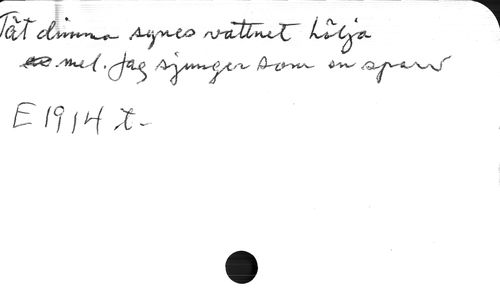 Tät dimma synes vattnet hölja
mel. Jag sjunger som en sparv
E 1914 t-